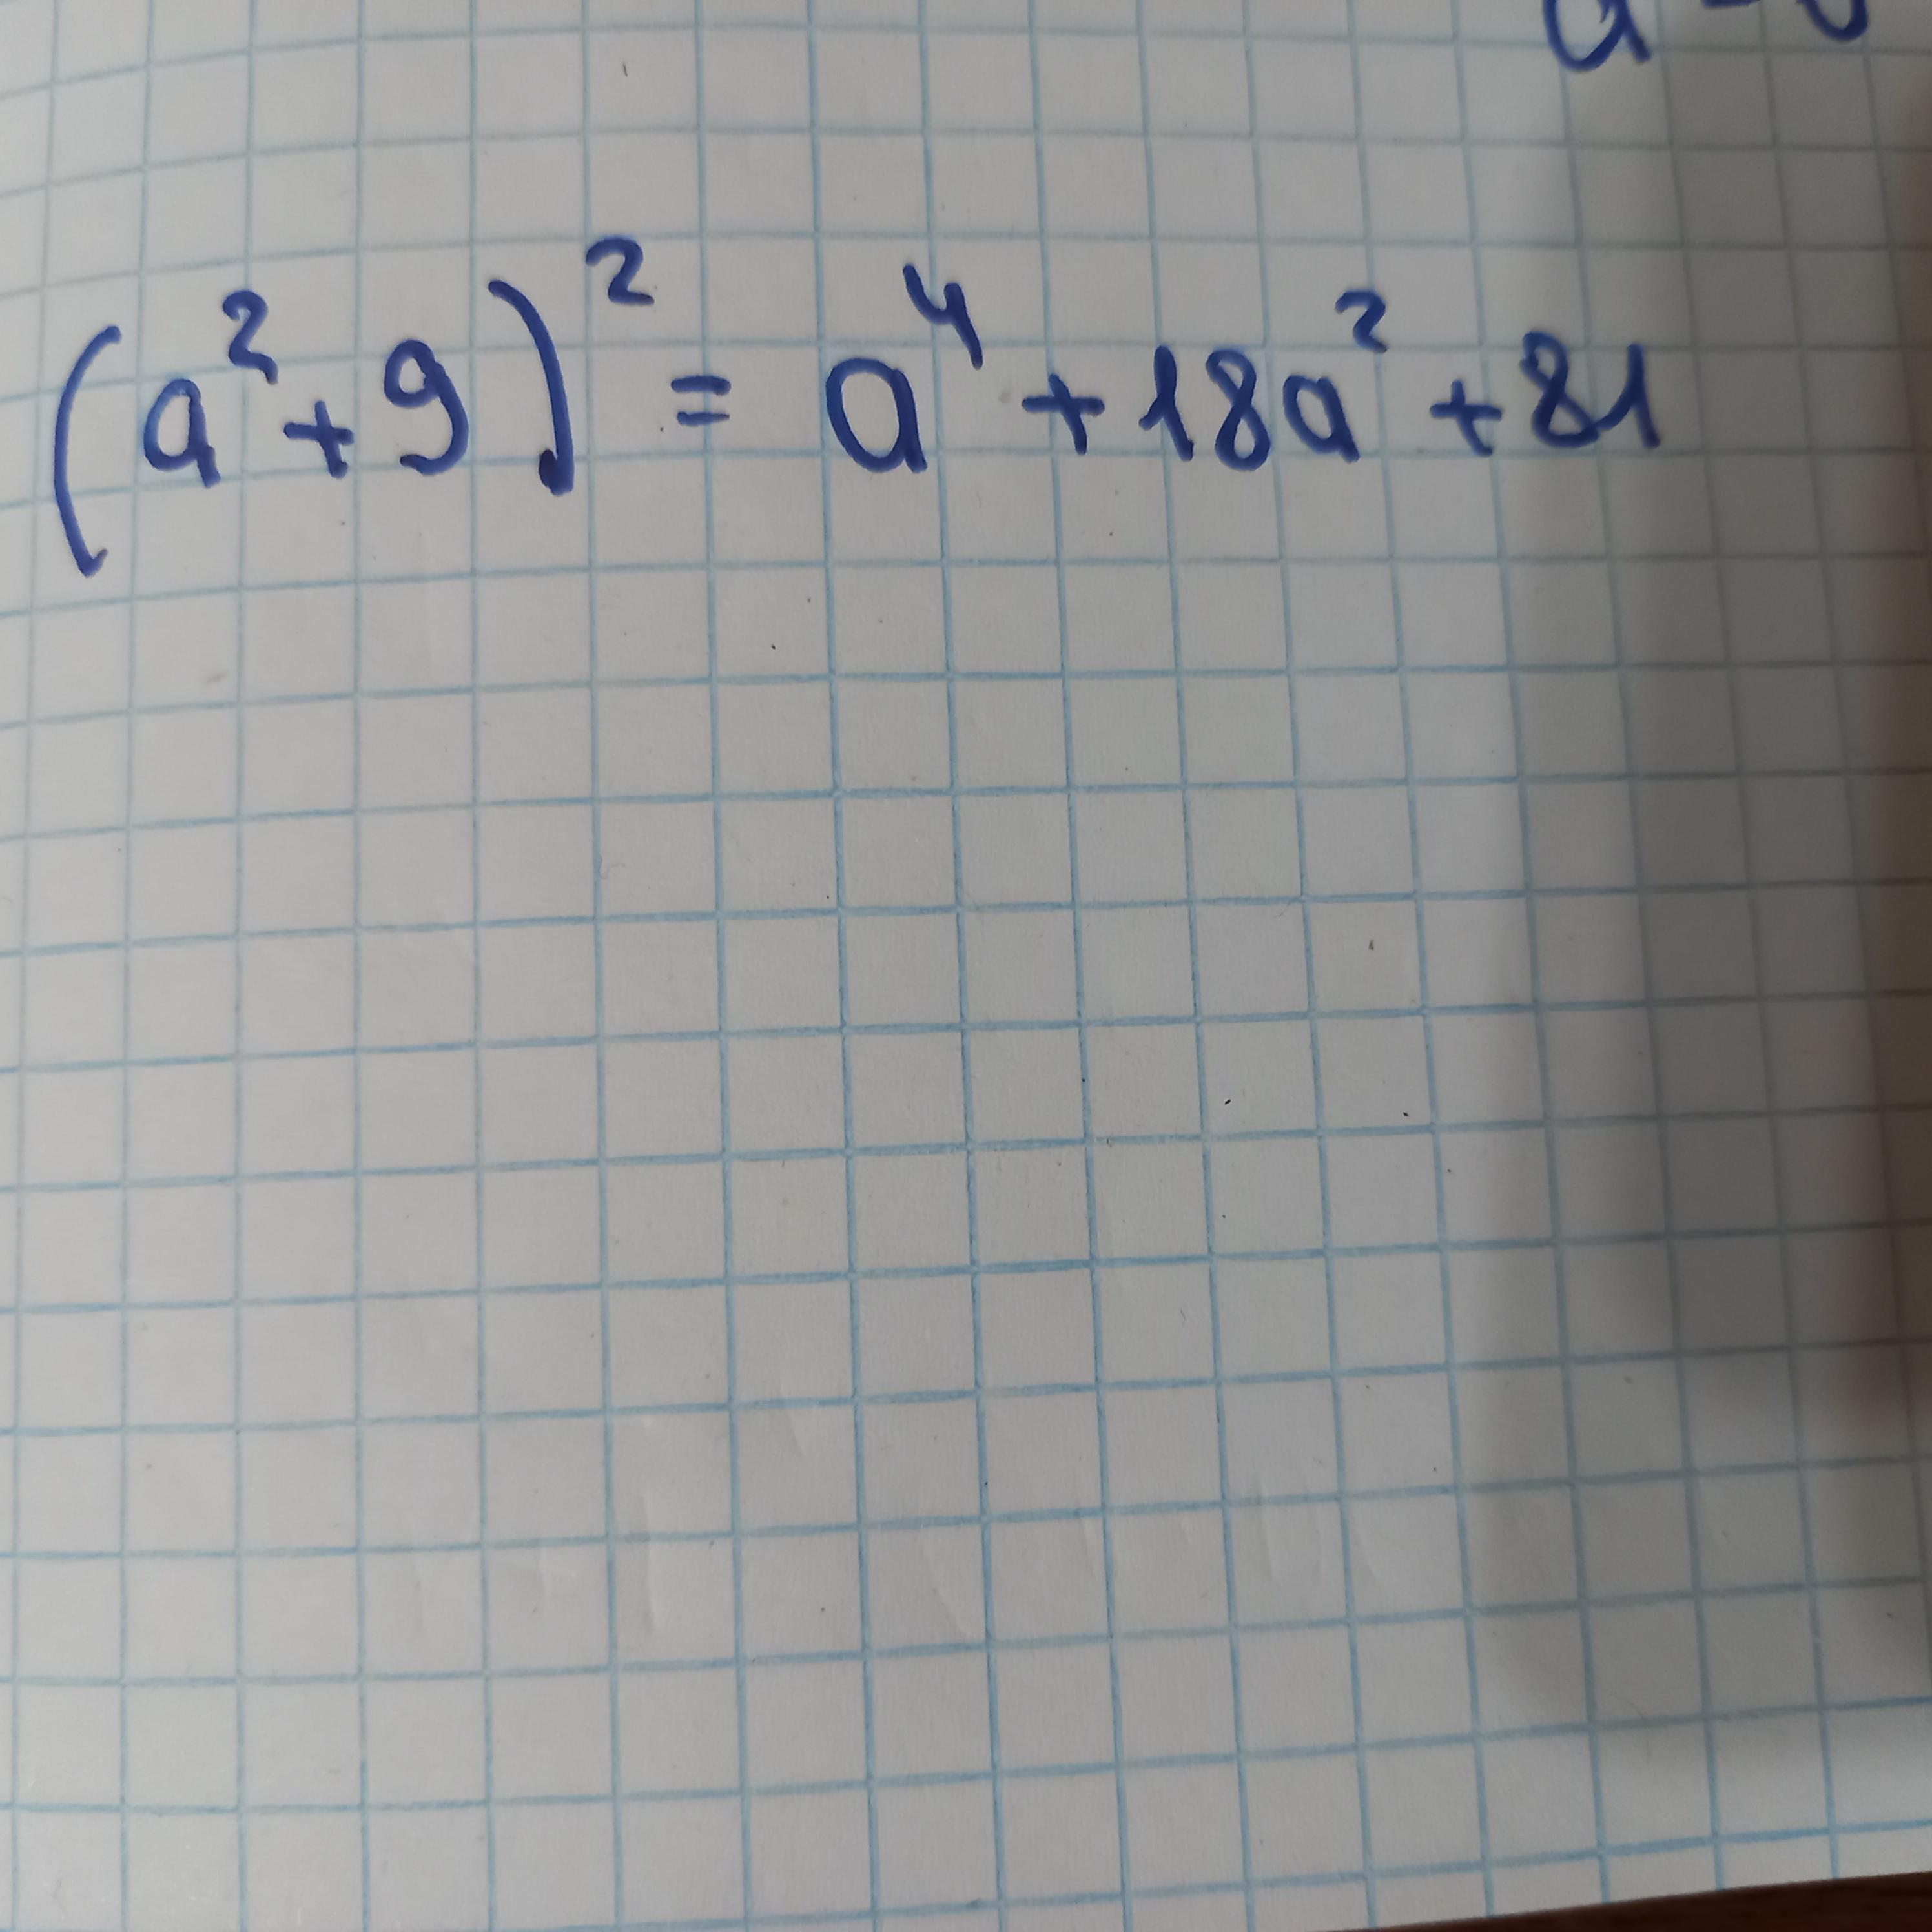 (a²+9)² = a⁴+18a²+81